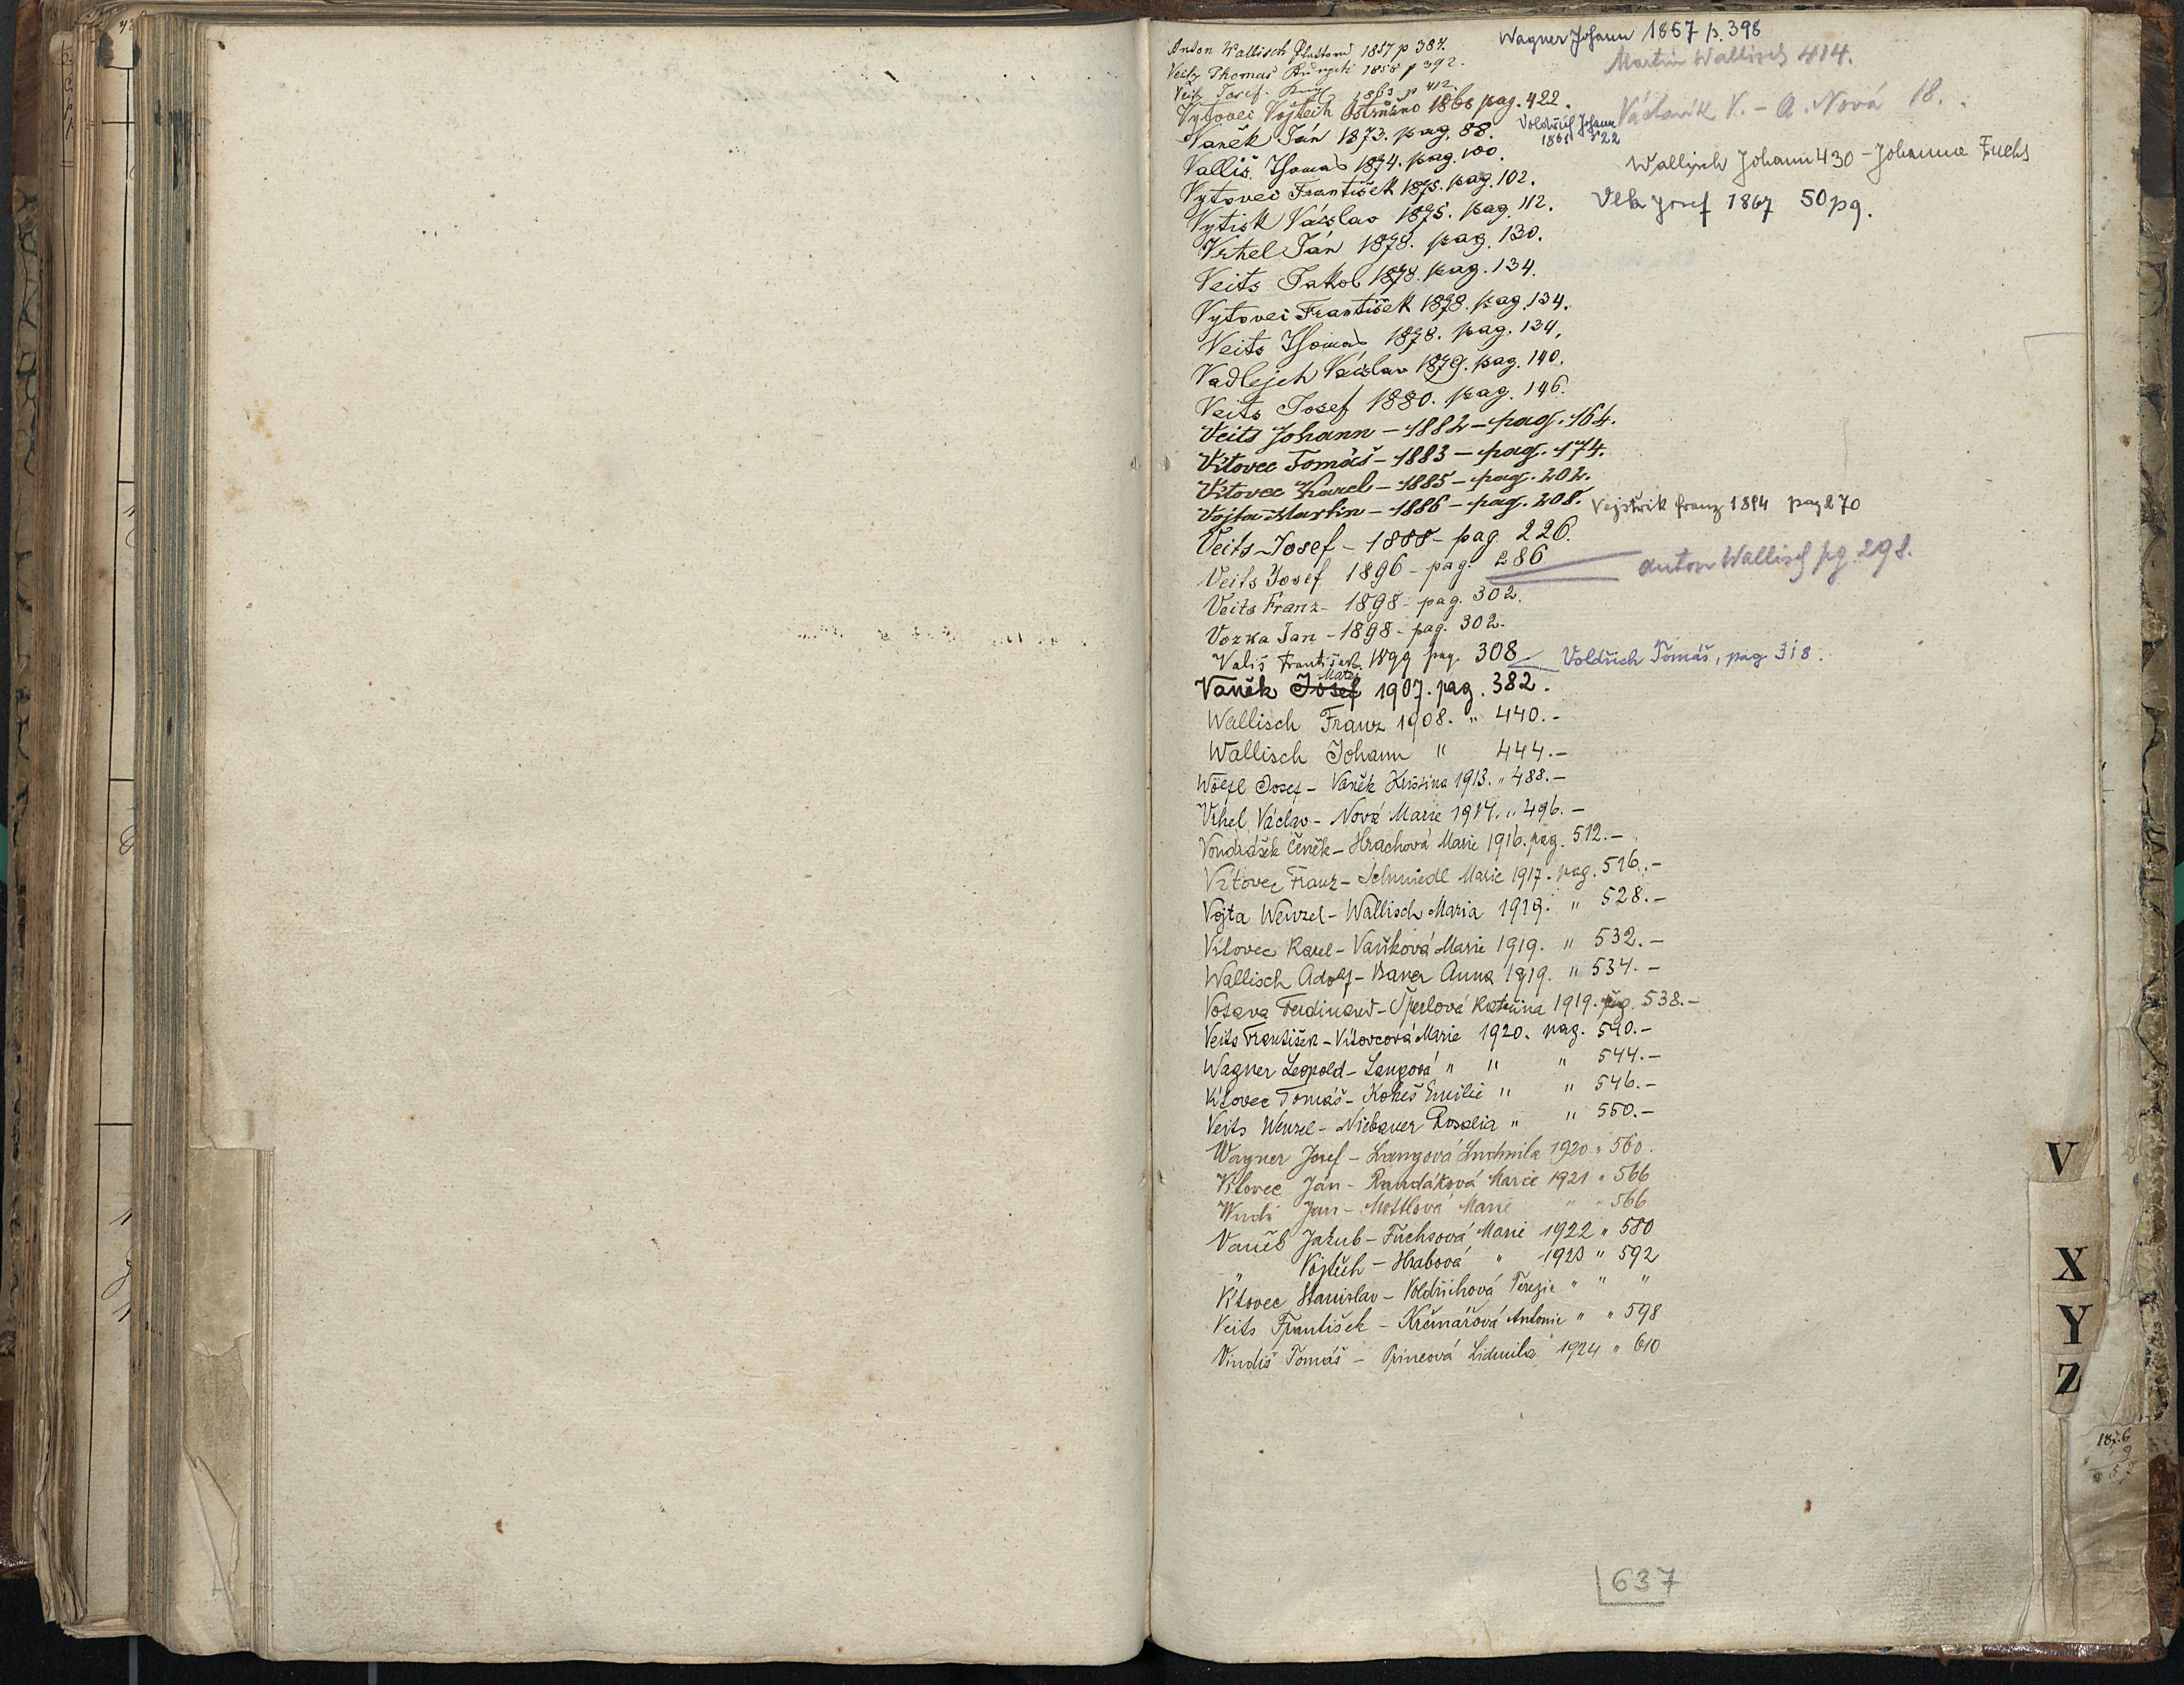 Anton Wallisch 1857 p 384.
Wagner Johann 1857 p. 398
Veitz Thomas 1858 p 392.
Martin Wallisch 414.
Veitz Josef 1863 p 412.
Vytovec Vojtěch Ostružno 1866 pag. 422.
Václavík V. - A. Nová 18.
Vaněk Ján 1873. pag. 88.
Voldřich Johann
1865 522
Valliš Thomas 1874. pag. 100.
Wallisch Johann 430 - Johanna Fuchs
Vytovec František 1875. pag. 102.
Vlk Josef 1867 50 pg.
Vytisk Václav 1875. pag. 112.
Vrhel Ján 1878. pag. 130.
Veits Jakob 1878. pag. 134.
Vytovec František 1878. pag. 134.
Veits Thomas 1878. pag. 134.
Vadlejch Václav 1879. pag. 140.
Veits Josef 1880. pag. 146.
Veits Johann - 1882 - pag. 164.
Vítovec Tomáš - 1883 - pag. 174.
Vítovec Karel - 1885 - pag. 202.
Vojta Martin - 1886 - pag. 208.
Vejstrik franz 1894 pag 270
Veits Josef - 1888 - pag. 226.
Veits Josef 1896 - pag. 286
Anton Wallisch pg. 298.
Veits Franz - 1898 - pag. 302.
Vozka Jan - 1898 - pag. 302.
Vališ František 1899 pag. 308
Voldřich Tomáš, pag 318.
Matěj
Vaněk Josef 1907. pag. 382.
Wallisch Franz 1908. " 440.-
Wallisch Johann " 444.-
Wölfl Josef - Vaněk Kristina 1913. " 488.-
Vrhel Václav - Nová Marie 1914. " 496.-
Vondrášek Čeněk - Hrachová Marie 1916. pag. 512.-
Vítovec Franz - Schmiedl Marie 1917. pag. 516.-
Vojta Wenzel - Wallisch Maria 1919. " 528.-
Vítovec Karel - Vaňková Marie 1919. " 532.-
Wallisch Adolf - Bauer Anna 1919. " 534.-
Votava Ferdinand - Šperlová Kateřina 1919. pag. 538.-
Veits František - Vítovcová Marie 1920. pag. 540.-
Wagner Leopold - Langová " " " 544.-
Vítovec Tomáš - Kokeš Emilie " " 546.-
Veits Wenzel - Niebauer Rosalia " " 550.-
Wagner Josef - Langová Ludmila 1920 " 560.
Vítovec Jan - Randáková Marie 1921 " 566
Jan - Mottlová Marie " " 566
Vaněk Jakub - Fuchsová Marie 1922 " 580
" Vojtěch - Hrabová " 1923 " 592
Vítovec Stanislav - Voldřichová Terezie " " "
Veits František - Krčmářová Antonie " " 598
Vindiš Tomáš - Princová Lidmila 1924 " 610
V
X
Y
Z
1876
637